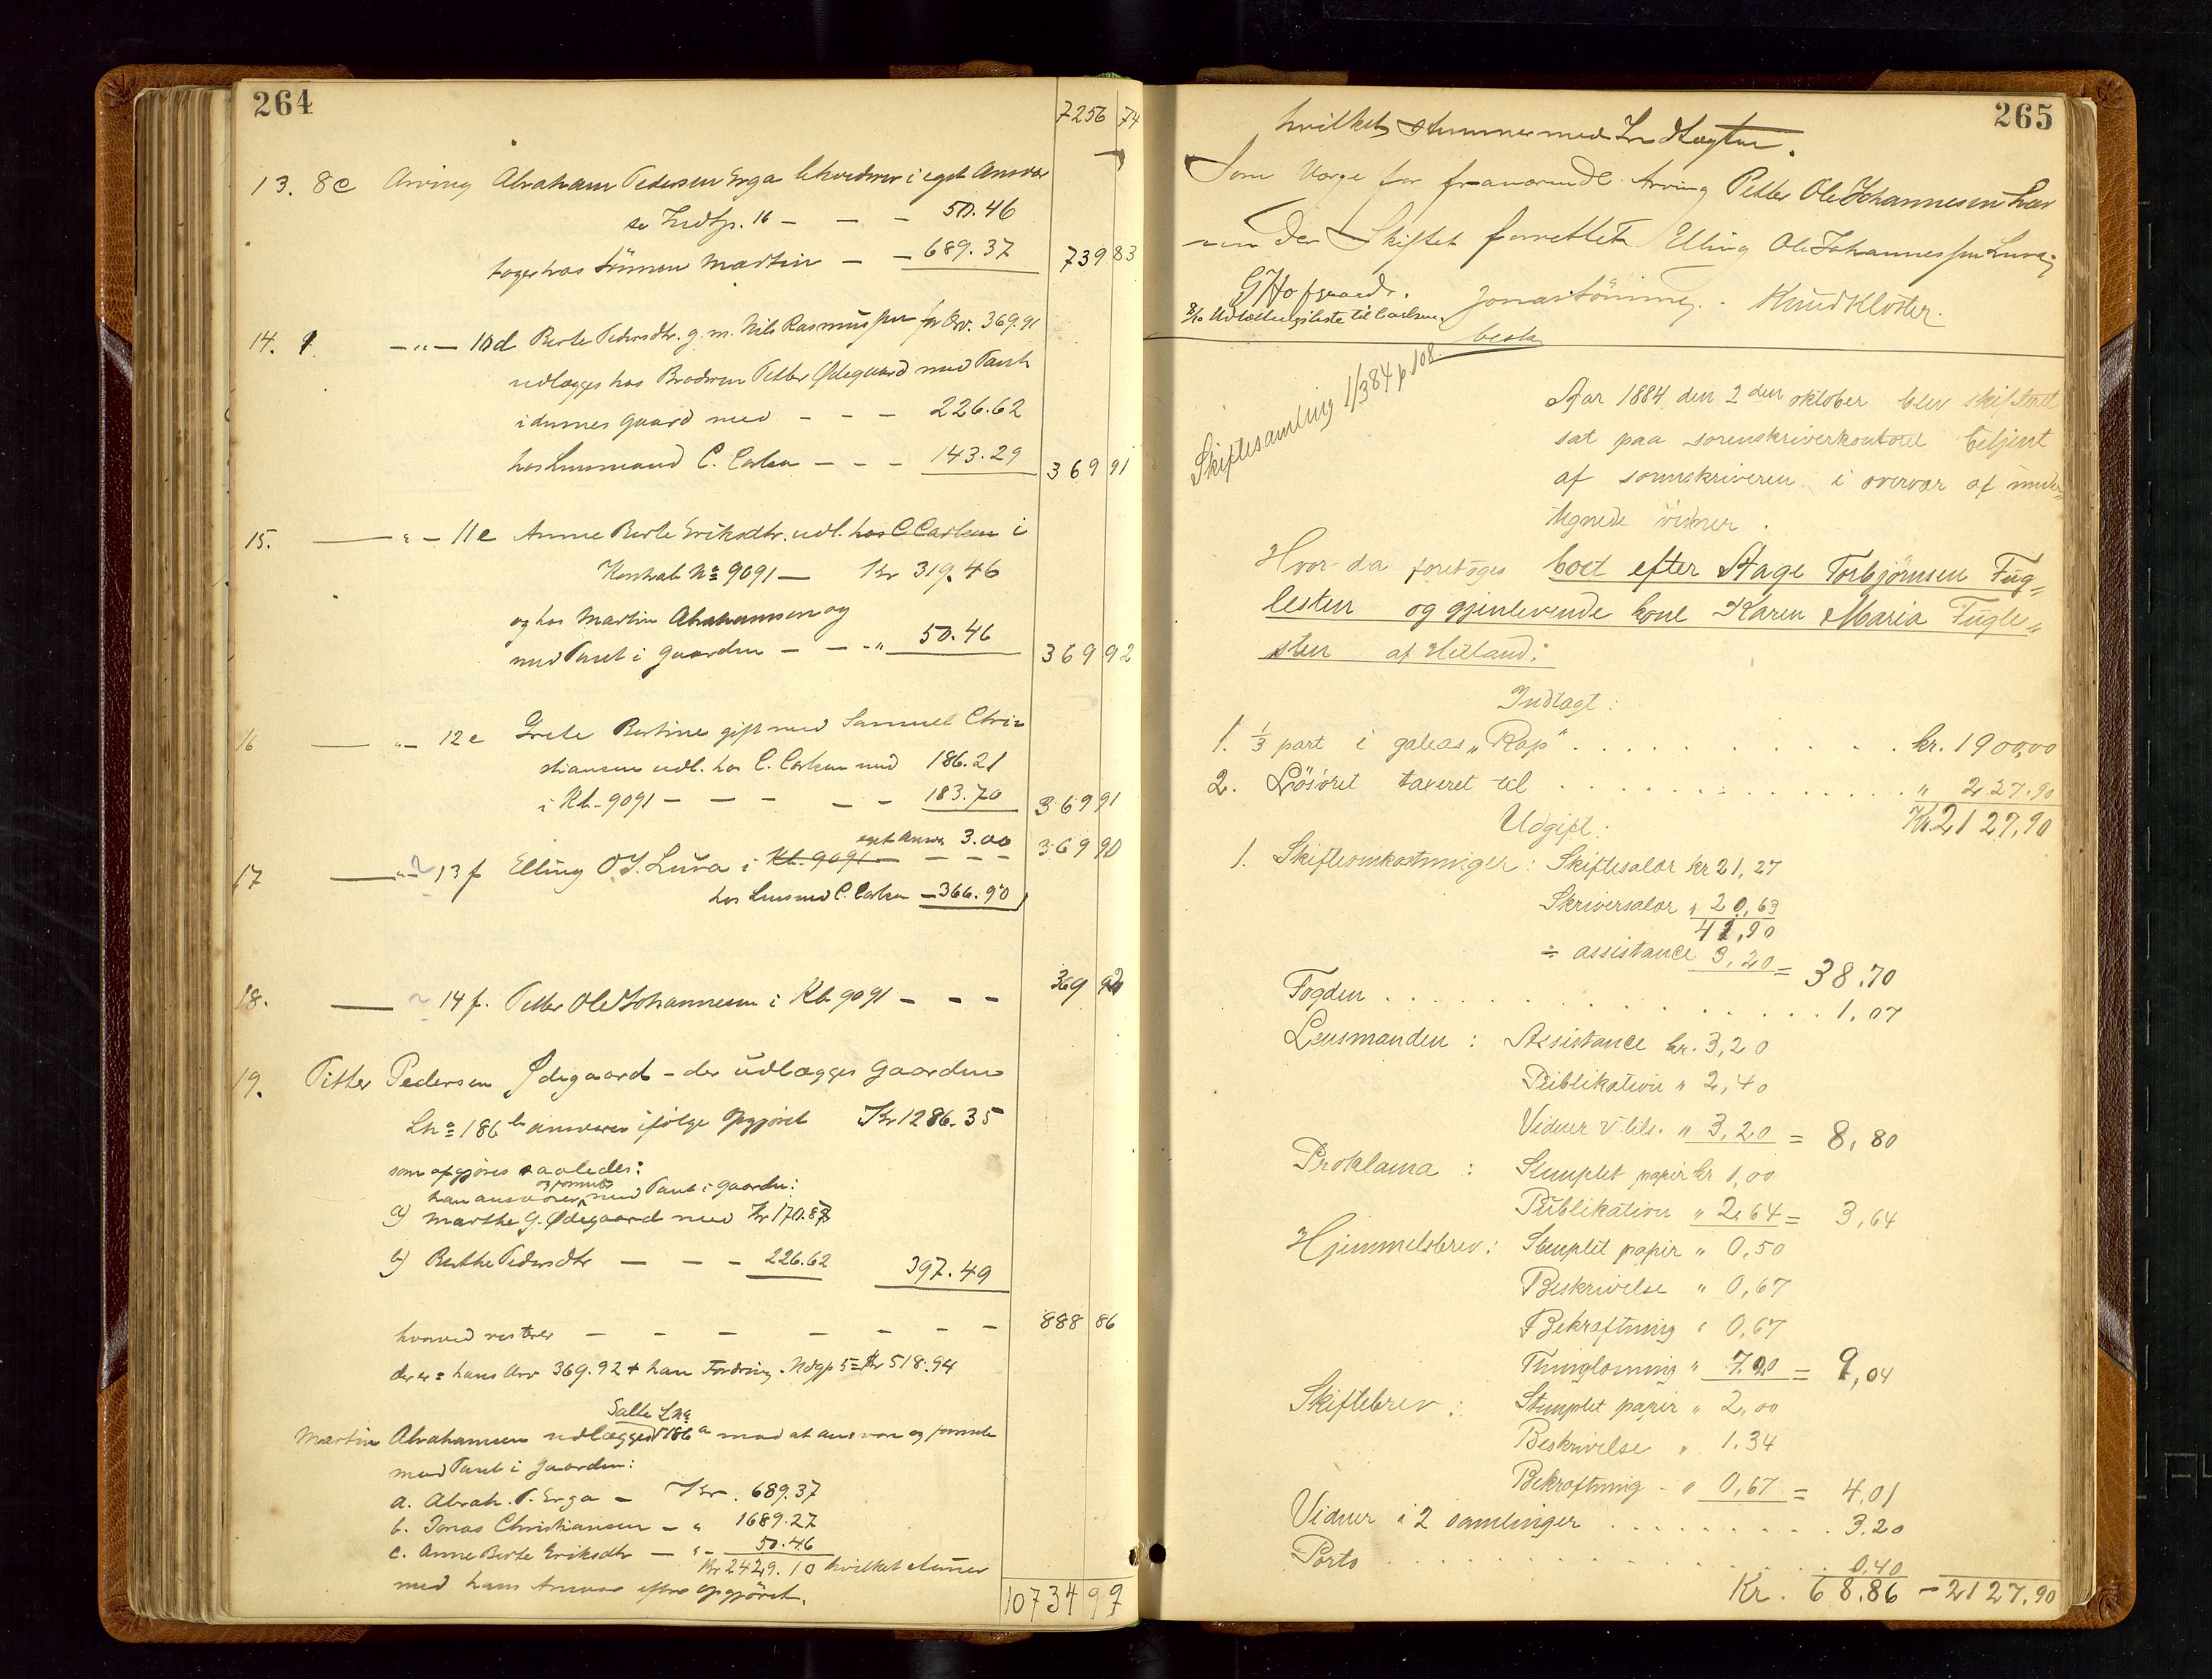 264
7256 74
13. 8c Arving Abraham Pedersen Erga likviderer i eget Ansvar
se Indtp. 16 — — — 50.46
tages hos sönnen Martin — — 689.37 739 83
14. 9 —"— 10d Berte Pedersdtr. g. m. Nils Rasmussen for Arv. 369.91
udlægges hos Brodren Petter Ødegaard med Pant
i dennes gaard med — — — 226.62
hos Lensmand C. Carlsen — — — 143.29 369 91
15. —— " — 11e Anne Berte Eriksdtr. udl. hos C Carlsen i
Kontrab No 9091 — Kr 319.46
og hos Martin Abrahamsen og
med Pant i gaarden — — " 50.46 369 92
16 —— " — 12e Grete Bertine gift med Samuel Chri-
stiansen udl. hos C. Carlsen med 186.21
i Kb. 9091 — — — — — 183.70 369 91
eget Ansvar 3.00 369 90
17 —— " — 13f Elling O J. Lura i Kb. 9091 — — — —
hos Lensmd C. Carlsen — 366.90
18. —— " 14f. Petter Ole Johannesen i Kb 9091 — — — 369 92
19. Petter Pedersen Ødegaard - der udlægges gaarden
Lno 186 b ansvarer ifölge Opgjöret Kr 1286.35
som opgjöres saaledes:
han ansvarer og forrenter med Pant i gaarden:
a) Marthe G. Ødegaard med Kr 170.87
b) Berthe Pedersdtr — — — 226.62 397.49
hvorved resterer — — — — — — — 888 86
der er = hans Arv 369.92 + hans Fordring. Udgp 5 = Kr 518.94
Salte Lno
Martin Abrahamsen udlægges 186 a mod at ansvare og forrente
med Pant i gaarden:
a. Abrah. P. Erga — Kr. 689.37
b. Jonas Christiansen — " 1689.27
c. Anne Berte Eriksdtr — " — 50.46
Kr 2429.10 hvilket stemmer
med hans Ansvar efter opgjöret.
10734 97
265
hvilket stemmer med Indtægten.
Som Værge for fraværende Arving Petter Ole Johannesen Lura
var der Skiftet forrettet Elling Ole Johannessen Lura,
G Hofgaard. Jonas Sömme. Knud Kloster.
8/10 Udlodlingsliste til Carlsen.
besk
Skiftesamling 1/3 84 p. 108.
Aar 1884 den 2den oktober blev skifteret
sat paa sorenskriverkontoret betjent
af sorenskriveren i overvær af under-
tegnede vidner.
Hvor da foretoges boet efter Aage Torbjörnsen Fug-
lesten og gjenlevende kone Karen Maria Fugle-
sten af Hetland:
Indtægt:
1. 1/3 part i galeas "Rap" . . . . . . . . . . kr. 1900,00
2. Lösöret taxeret til . . . . . . . . . . . . " 227.90
Kr. 2127,90
Udgift:
1. Skifteomkostninger: Skiftesalær kr 21,27
Skriversalær " 20,63
41,90
÷ assistance 3,20 = 38,70
Fogden . . . . . . . . . . . . . . . . 1,07
Lensmanden: Assistance kr. 3,20
Publikation " 2,40
Vidner v tils. " 3,20 = 8,80
Proklama: Stemplet papir kr 1,00
Publikation " 2,64 = 3,64
Hjemmelsbrev: Stemplet papir " 0,50
Beskrivelse " 0,67
Bekræftning " 0,67
Thinglæsning " 7.20 = 9,04
Skiftebrev: Stemplet papir " 2,00
Beskrivelse " 1.34
Bekræftning - " 0,67 = 4,01
Vidner i 2 samlinger . . . . . . . . . 3.20
Porto . . . . . . . . . . . . . . . . 0,40
Kr. 68.86 — 2127,90